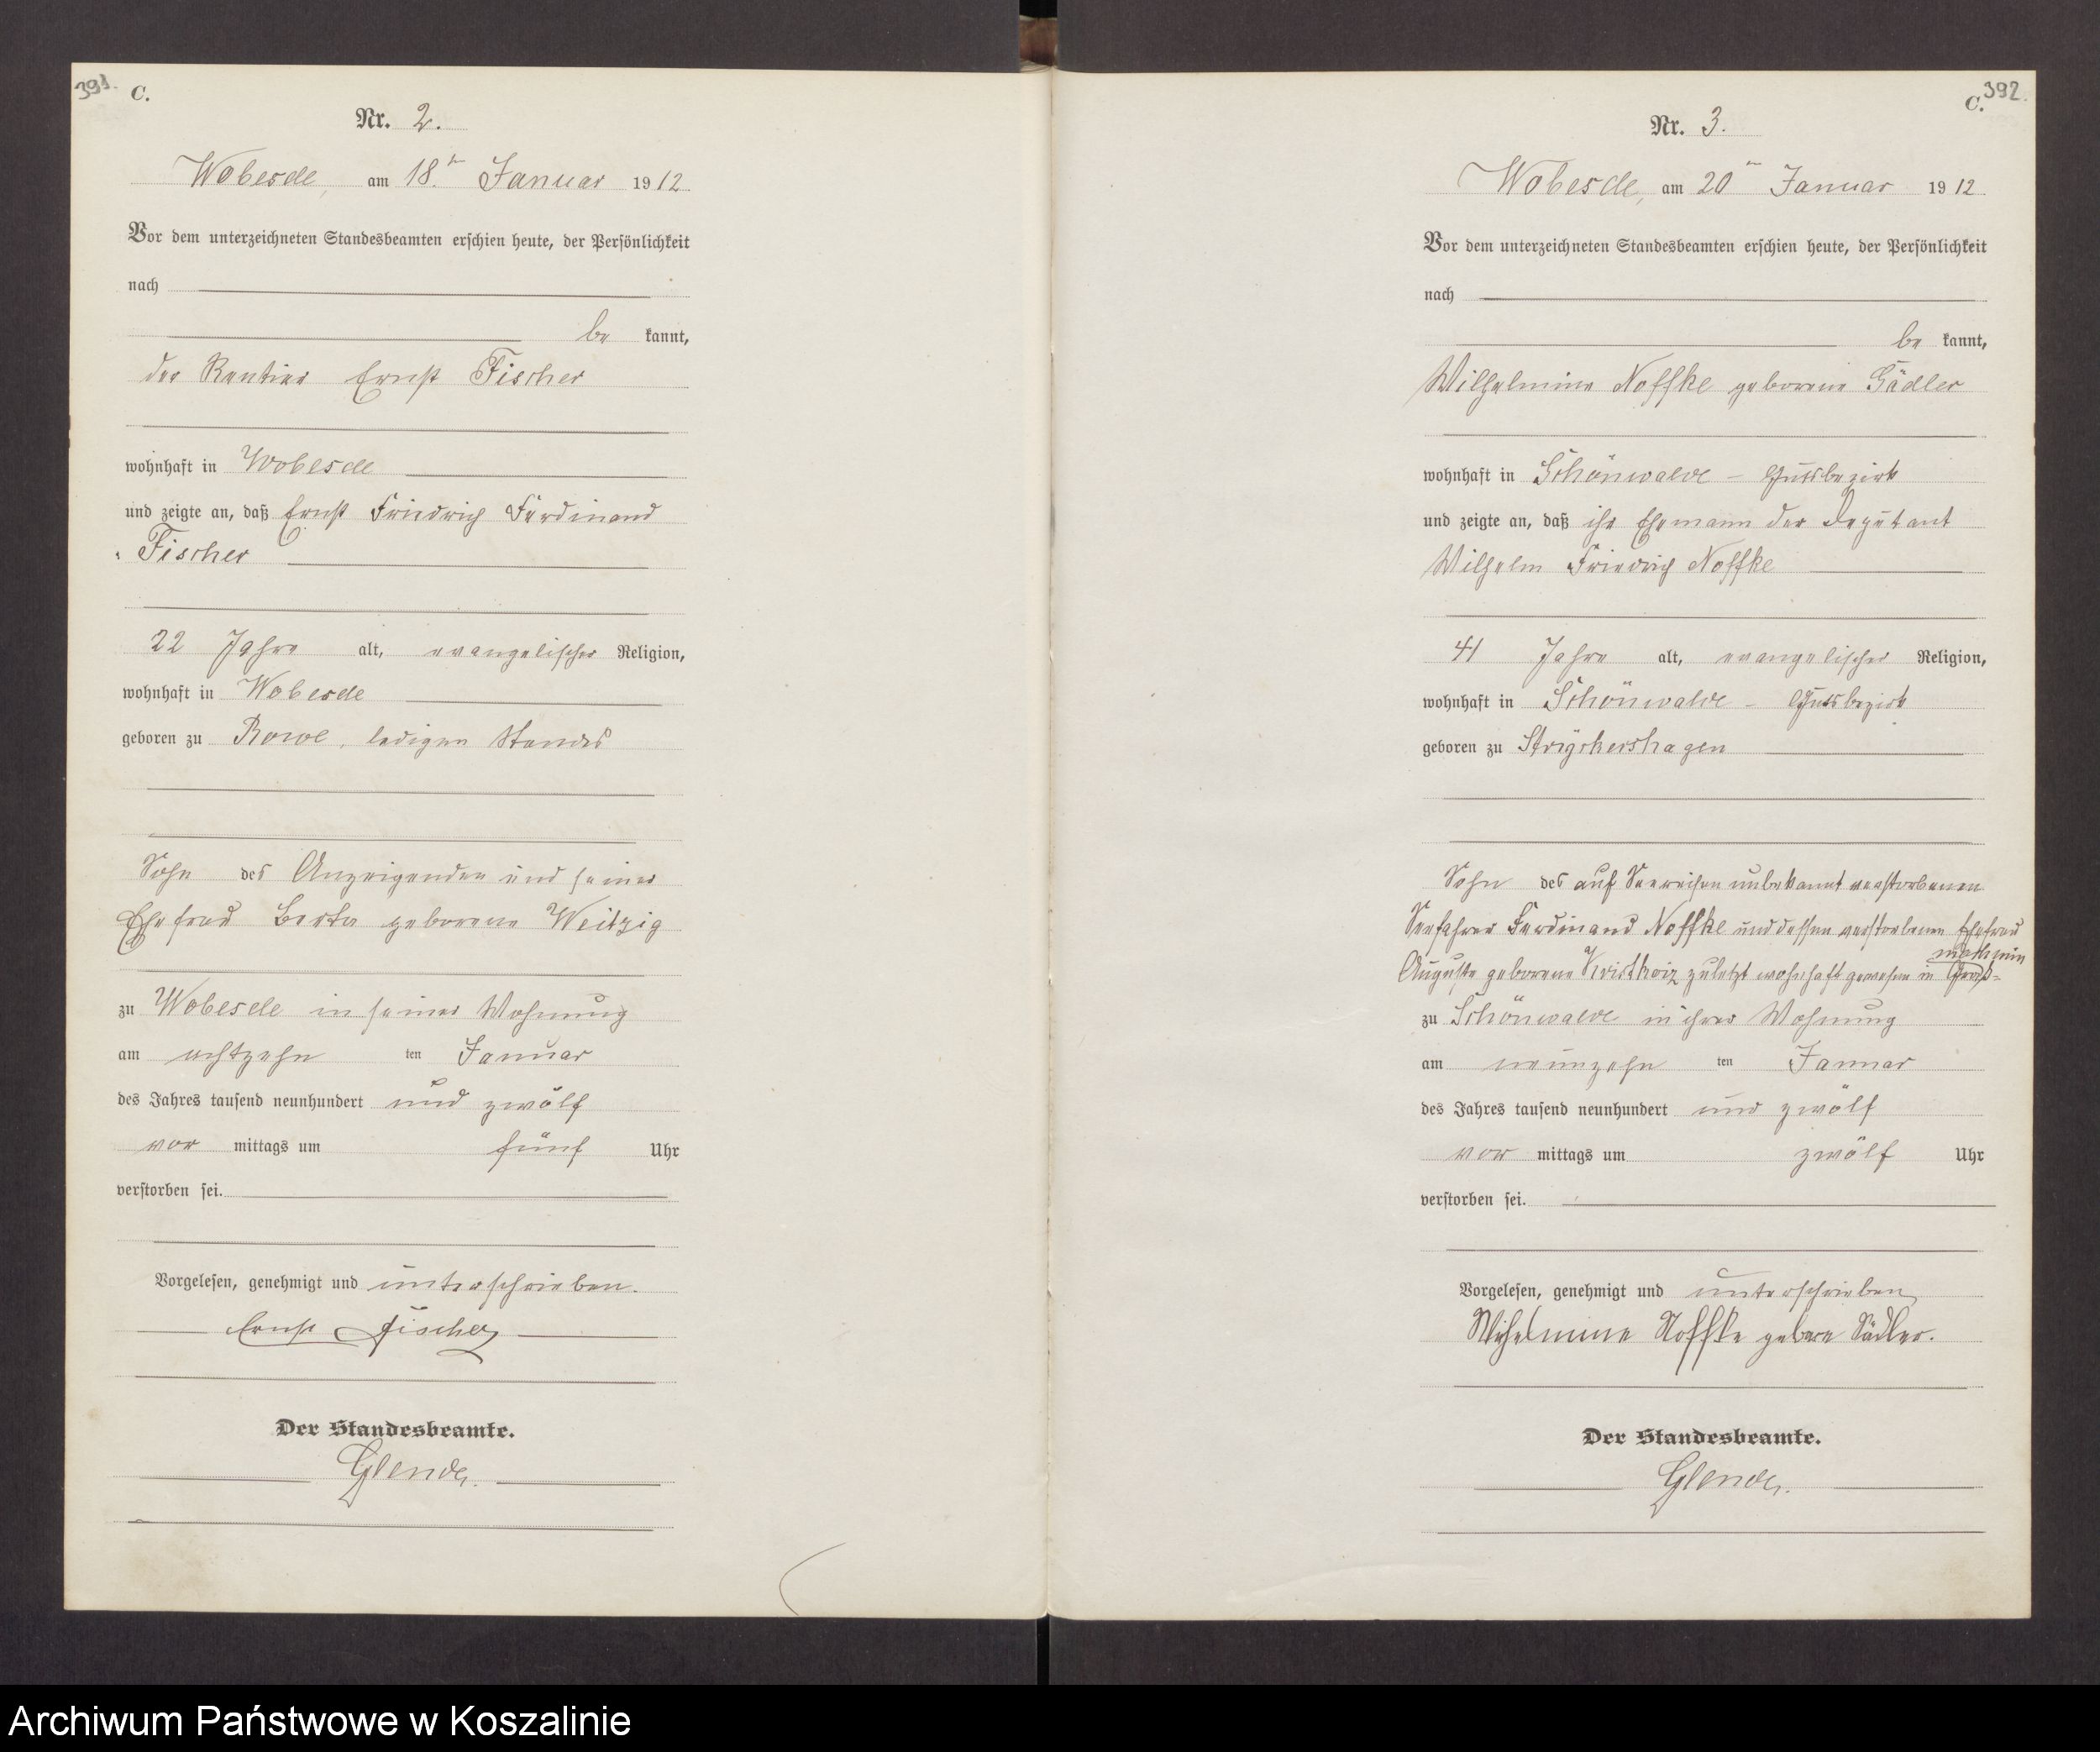 391.
C.
Nr. 2.
Wobesde, am 18.ten Januar 1912
Vor dem unterzeichneten Standesbeamten erschien heute, der Persönlichkeit
nach
be kannt,
der Rentier Ernst Fischer
wohnhaft in Wobesde
und zeigte an, daß Ernst Friedrich Ferdinand
Fischer
22 Jahre alt, evangelischer Religion,
wohnhaft in Wobesde
geboren zu Rowe, ledigen Standes
Sohn des Anzeigenden und seiner
Ehefrau Berta geborene Weitzig
zu Wobesde in seiner Wohnung
am achtzehn ten Januar
des Jahres tausend neunhundert und zwölf
vor mittags um fünf Uhr
verstorben sei.
Vorgelesen, genehmigt und unterschrieben.
Ernst Fischer
Der Standesbeamte.
392.
C.
Nr. 3.
Wobesde, am 20ten Januar 1912
Vor dem unterzeichneten Standesbeamten erschien heute, der Persönlichkeit
nach
be kannt,
Wilhelmine Noffke geborene Sädler
wohnhaft in Schönwalde - Gutsbezirk
und zeigte an, daß ihr Ehemann der Deputant
Wilhelm Friedrich Noffke
41 Jahre alt, evangelischer Religion,
wohnhaft in Schönwalde - Gutsbezirk
geboren zu
Sohn des auf Seereisen unbekannt verstorbenen
Seefahrer Ferdinand Noffke und dessen verstorbenen Ehefrau
Auguste geborene zuletzt wohnhaft gewesen in
zu Schönwalde in ihrer Wohnung
am neunzehn ten Januar
des Jahres tausend neunhundert und zwölf
vor mittags um zwölf Uhr
verstorben sei.
Vorgelesen, genehmigt und unterschrieben
Wilhelmine Noffke geborne Sädler.
Der Standesbeamte.
Archiwum Państwowe w Koszalinie